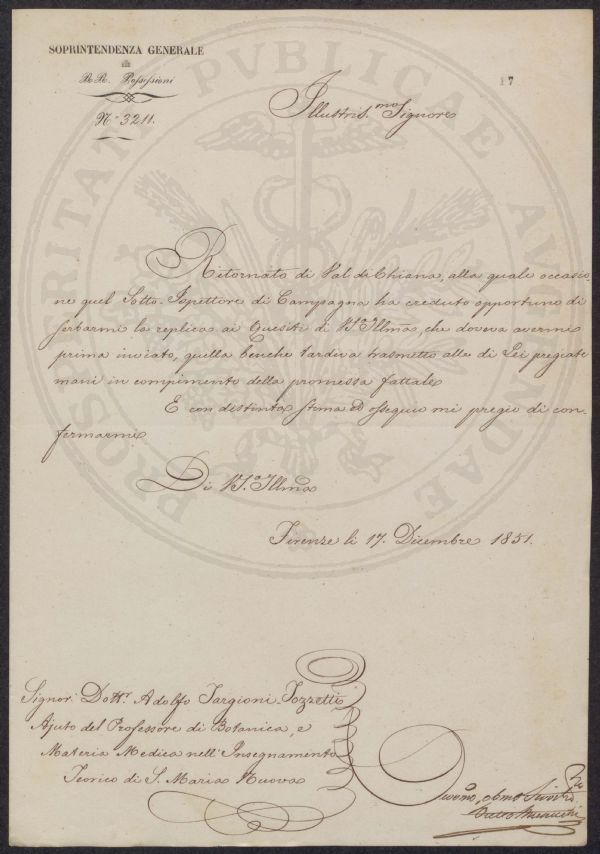 SOPRINTENDENZA GENERALE
delle
RR. Possessioni
N.° 3211.
17
Illustris.mo Signore
Ritornato di Val di Chiana, alla quale occasio=
ne quel Sotto-Ispettore di Campagna ha creduto opportuno di
serbarmi la replica ai Quesiti di V.S.a Illma, che doveva avermi
prima inviato, quella benche tardiva trasmetto alle di Lei pregiate
mani in compimento della promessa fattale
E con distinta stima ed ossequio mi pregio di con=
fermarmi
Di V.S.a Illma
Firenze li 17. Dicembre 1851.
Signor Dott.r Adolfo Targioni-Tozzetti
Ajuto del Professore di Botanica, e
Materia Medica nell'Insegnamento
Teorico di S. Maria Nuova
obmo
PROSPERITATI PVBLICAE AVGENDAE